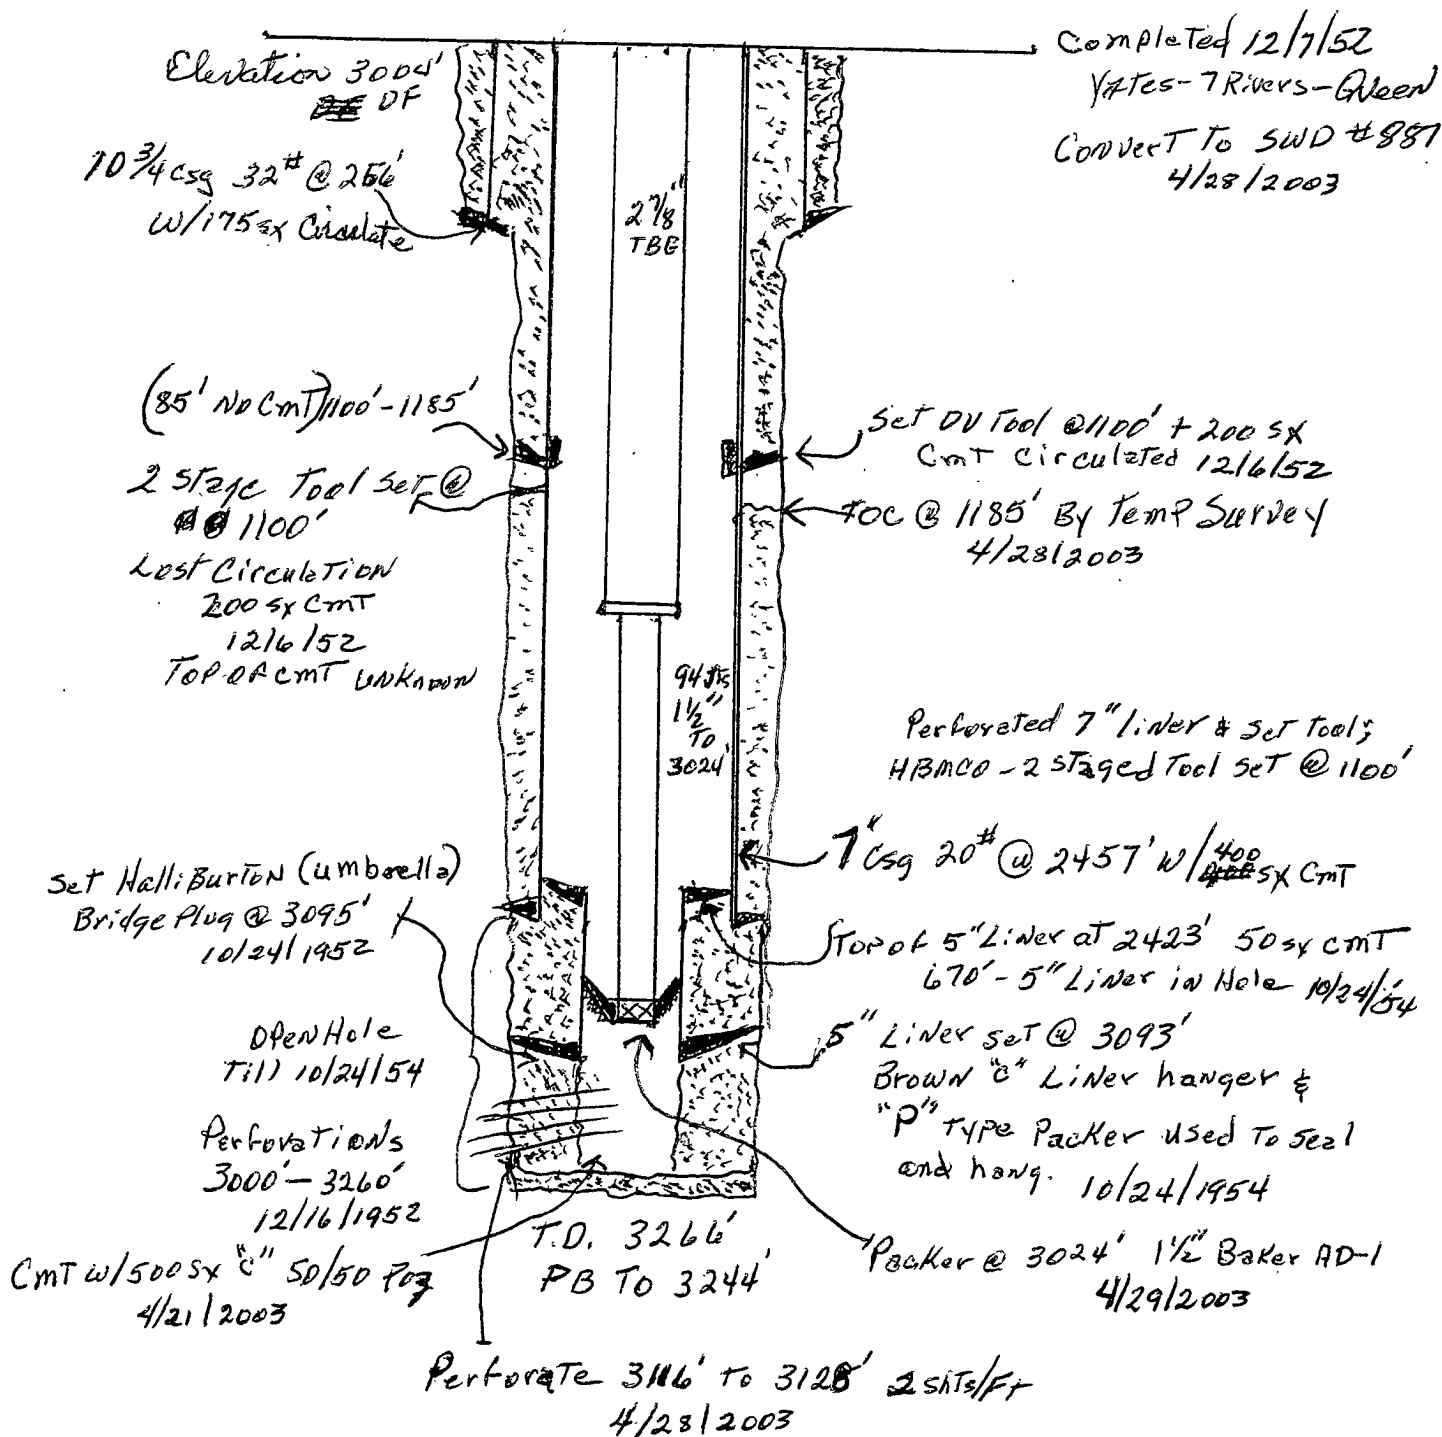 Elevation 3004'
DF
10 3/4 csg 32# @ 256'
W/175 sx Circulate
Completed 12/7/52
Yates-7 Rivers-Queen
Convert To SWD #887
4/28/2003
2 7/8"
TBG
(85' No CmT) 1100'-1185'
2 Stage Tool Set @
1100'
Lost Circulation
200 sx CmT
12/6/52
Top of cmT unknown
Set DV Tool @1100' + 200 sx
CmT Circulated 12/6/52
TOC @ 1185' By Temp Survey
4/28/2003
94 Jts
1 1/2"
TO
3024'
Perforated 7" liner & set tool;
HBMCO - 2 staged Tool SeT @ 1100'
7" Csg 20# @ 2457' W/400 sx CmT
Set HalliBurton (umbrella)
Bridge Plug @ 3095'
10/24/1952
Top of 5" Liner at 2423' 50 sx cmT
670' - 5" Liner in Hole 10/24/54
Open Hole
Till 10/24/54
5" Liner set @ 3093'
Brown "C" Liner hanger &
"P" Type Packer used To seal
and hang. 10/24/1954
Perforations
3000' - 3260'
12/16/1952
CmT w/500 sx "C" 50/50 Poz
4/21/2003
T.D. 3266'
PB To 3244'
Packer @ 3024' 1 1/2" Baker AD-1
4/29/2003
Perforate 3116' To 3128' 2 shTs/Ft
4/28/2003